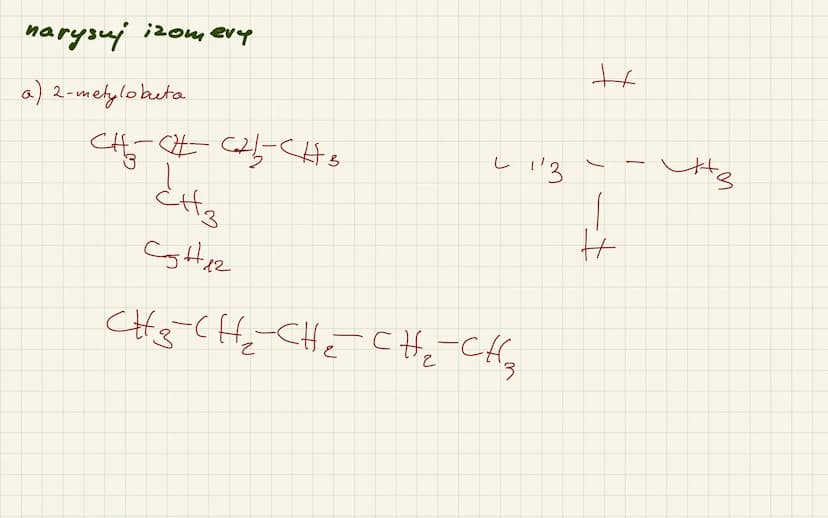 narysuj izomery
a) 2-metylobuta
CH3-CH-CH2-CH3
|
CH3
C5H12
CH3-CH2-CH2-CH2-CH3
H
- CH3
|
H